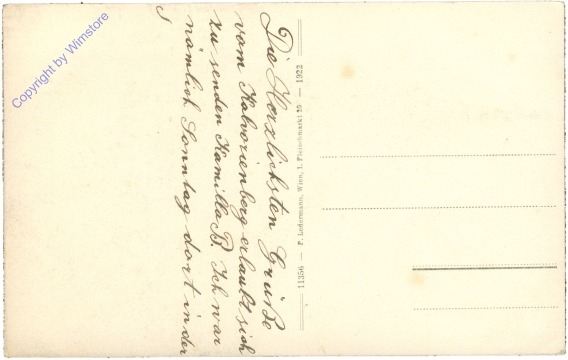 Die Herzlichsten Grüße
vom Kalvorienberg erlaubt sich
zu senden Kamilla B. Ich war
nämlich Sonntag dort in der
S
11356 — P. Ledermann, Wien, I. Fleischmarkt 20 — 1922
Copyright by Wimstore